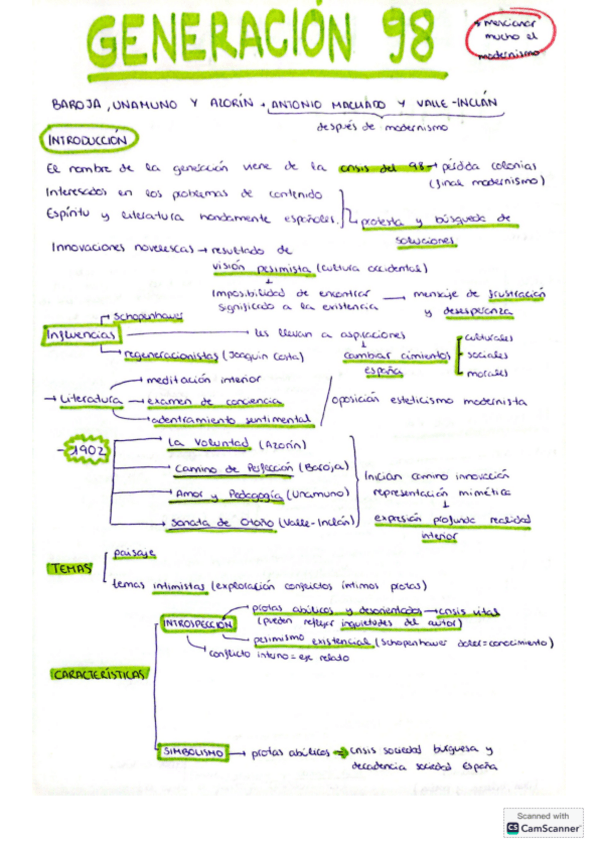 GENERACIÓN 98
* mencionar mucho el modernismo
BAROJA, UNAMUNO Y AZORÍN + ANTONIO MACHADO Y VALLE-INCLÁN
después de modernismo
INTRODUCCIÓN
El nombre de la generación viene de la crisis del 98 → pérdida colonias
(final modernismo)
Interesados en los problemas de contenido
Espíritu y literatura hondamente españoles.
protesta y búsqueda de
soluciones
Innovaciones novelescas → resultado de
visión pesimista (cultura occidental)
↓
Imposibilidad de encontrar → mensaje de frustración
significado a la existencia y desesperanza
Schopenhauer
Influencias → les llevan a aspiraciones
↓
regeneracionistas (Joaquín Costa)
cambiar cimientos
españa
culturales
sociales
morales
→ meditación interior
→ Literatura → examen de conciencia
→ adentramiento sentimental
oposición esteticismo modernista
- 1902
→ La Voluntad (Azorín)
→ Camino de Perfección (Baroja)
→ Amor y Pedagogía (Unamuno)
→ Sonata de Otoño (Valle-Inclán)
Inician camino innovación
representación mimética
↓
expresión profunda realidad
interior
TEMAS
paisaje
temas intimistas (exploración conflictos íntimos protas)
CARACTERÍSTICAS
INTROSPECCIÓN
→ protas abúlicos y desorientados → crisis vital
(pueden reflejar inquietudes del autor)
→ pesimismo existencial (Schopenhauer dolor=conocimiento)
→ conflicto interno = eje relato
SIMBOLISMO → protas abúlicos → crisis sociedad burguesa y
decadencia sociedad España
Scanned with
CS CamScanner